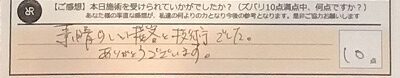 【ご感想】本日施術を受けられていかがでしたか?(ズバリ10点満点中、何点ですか?)
あなた様の率直な感想が、私達の何よりの力となり今後の参考となります。是非ご協力お願いします
素晴らしい接客と技術でした。
ありがとうございます。
10点